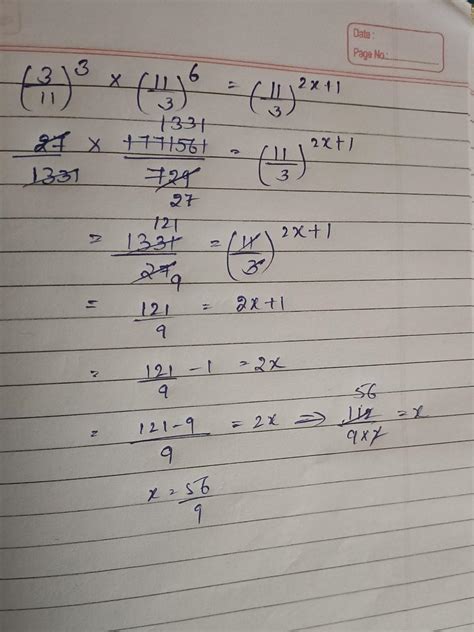 Date :
Page No :
(3/11)^3 × (11/3)^6 = (11/3)^2x+1
1331
27/1331 × 1771561/729 = (11/3)^2x+1
27
121
= 1331/27 = (11/3)^2x+1
9
= 121/9 = 2x+1
= 121/9 - 1 = 2x
= 121-9/9 = 2x ⇒ 112/9×2 = x
56
x = 56/9